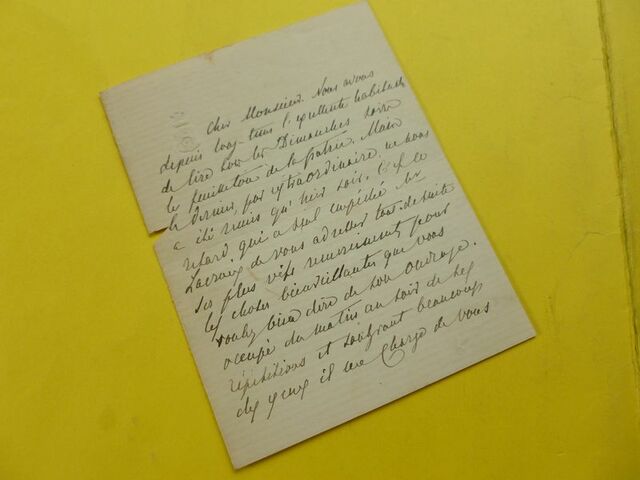 Cher Monsieur. Nous avons
depuis long-tems l'excellente habitude
de lire tous les Dimanches soirs
le feuilleton de la patrie. Mais
le dernier, par extraordinaire, ne nous
a été remis qu'hier soir. C'est ce
retard qui a seul empêché Mr
Lacroix de vous adresser tout de suite
ses plus vifs remerciements pour
les choses bienveillantes que vous
voulez bien dire de son ouvrage.
occupé du matin au soir de ses
répétitions et souffrant beaucoup
des yeux il me charge de vous